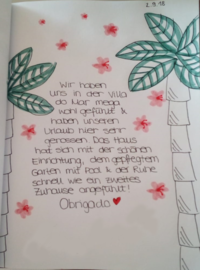 2.9.18
Wir haben
uns in der Villa
do Mar mega
wohl gefühlt &
haben unseren
Urlaub hier sehr
genossen. Das Haus
hat sich mit der schönen
Einrichtung, dem gepflegtem
Garten mit Pool & der Ruhe
schnell wie ein zweites
Zuhause angefühlt!
Obrigado